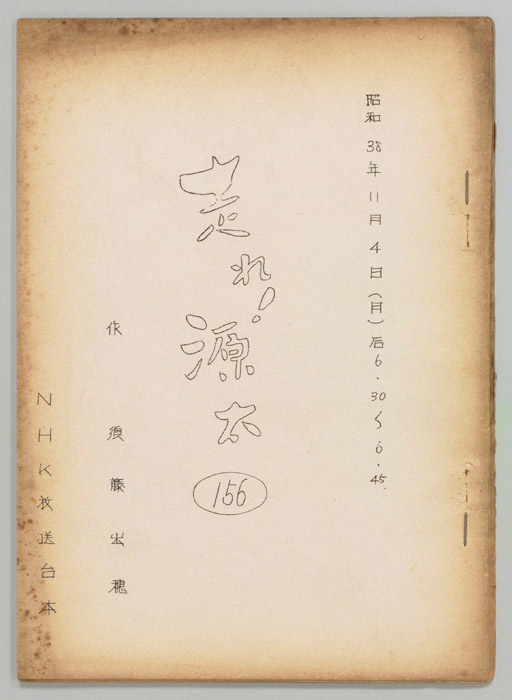 昭和38年11月4日(月)后6.30〜6.45.
走れ!源太
156
作 須藤出穂
NHK放送台本